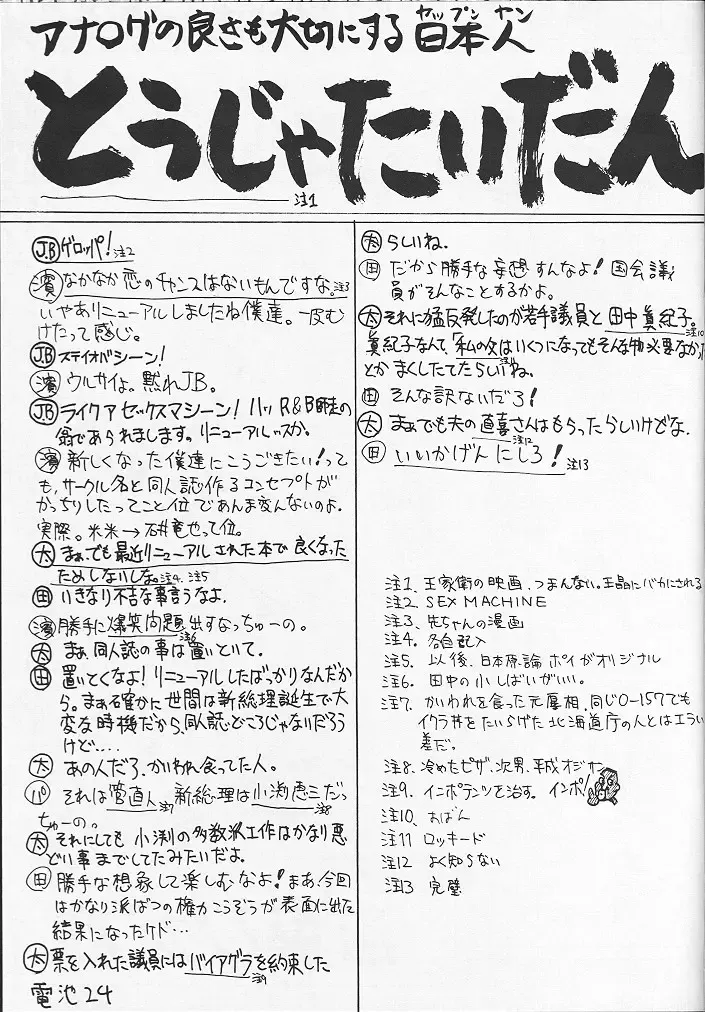 アナログの良さも大切にする日本人
ヤップン ヤン
とうじゃたいだん
注1
J.B ゲロッパ! 注2
濱 なかなか恋のチャンスはないもんですな。注3
いやありニューアルしましたね僕達。一皮む
けたって感じ。
JB ステイオバシーン!
濱 ウルサイよ。黙れJB。
JB ライクアセックスマシーン! ハッ R&B師走の
翁であられまします。リニューアルッスか。
濱 新しくなった僕達にこうごきたい!って
も、サークル名と同人誌作るコンセプトが
かっちりしたってこと位であんま変んないのよ.
実際。米米→石井竜也って位。
太 まぁ、でも最近リニューアルされた本で良くなった
ためしないしな。注4. 注5
田 いきなり不吉な事言うなよ.
濱 勝手に爆笑問題出すなっちゅーの。
注6
太 まぁ、同人誌の事は置いといて.
田 置いとくなよ! リニューアルしたばっかりなんだか
ら。まぁ確かに世間は新総理誕生で大
変な時機だから、同人誌どころじゃないだろう
けど‥‥
太 あの人だろ、かいわれ食ってた人。
パ それは菅直人 新総理は小渕恵三だっ
注7 注8
ちゅーの。
太 それにしても小渕の多数派工作はかなり悪
どい事までしてたみたいだよ.
田 勝手な想象して楽しむなよ! まあ、今回
はかなり派ばつの権力こうぞうが表面に出た
結果になったケド…
太 票を入れた議員にはバイアグラを約束した
注9
電池24
太 らしいね.
田 だから勝手な妄想すんなよ! 国会議
員がそんなことするかよ。
太 それに猛反発したのが若手議員と田中眞紀子。
注10
眞紀子なんて、「私の父はいくつになってもそんな物必要なかった
とか まくしたててたらしいね。
注11
田 そんな訳ないだろ!
太 まぁでも夫の直喜さんはもらったらしいけどな.
注12
田 いいかげんにしろ!
注13
注1. 王家衛の映画、つまんない。王晶にバカにされる
注2. SEX MACHINE
注3. 先ちゃんの漫画
注4. 各自記入
注5. 以後、日本原論ポイがオリジナル
注6. 田中の小しばいがいい。
注7. かいわれを食った元厚相、同じO-157でも
イクラ丼をたいらげた北海道庁の人とはエラい
差だ。
注8. 冷めたピザ、次男、平成オジサン
注9. インポテンツを治す。 インポ!
注10. おばん
注11 ロッキード
注12 よく知らない
注13 完璧